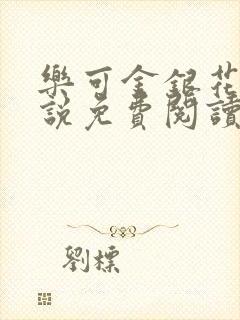 樂可金銀花
說免費閱讀
劉標